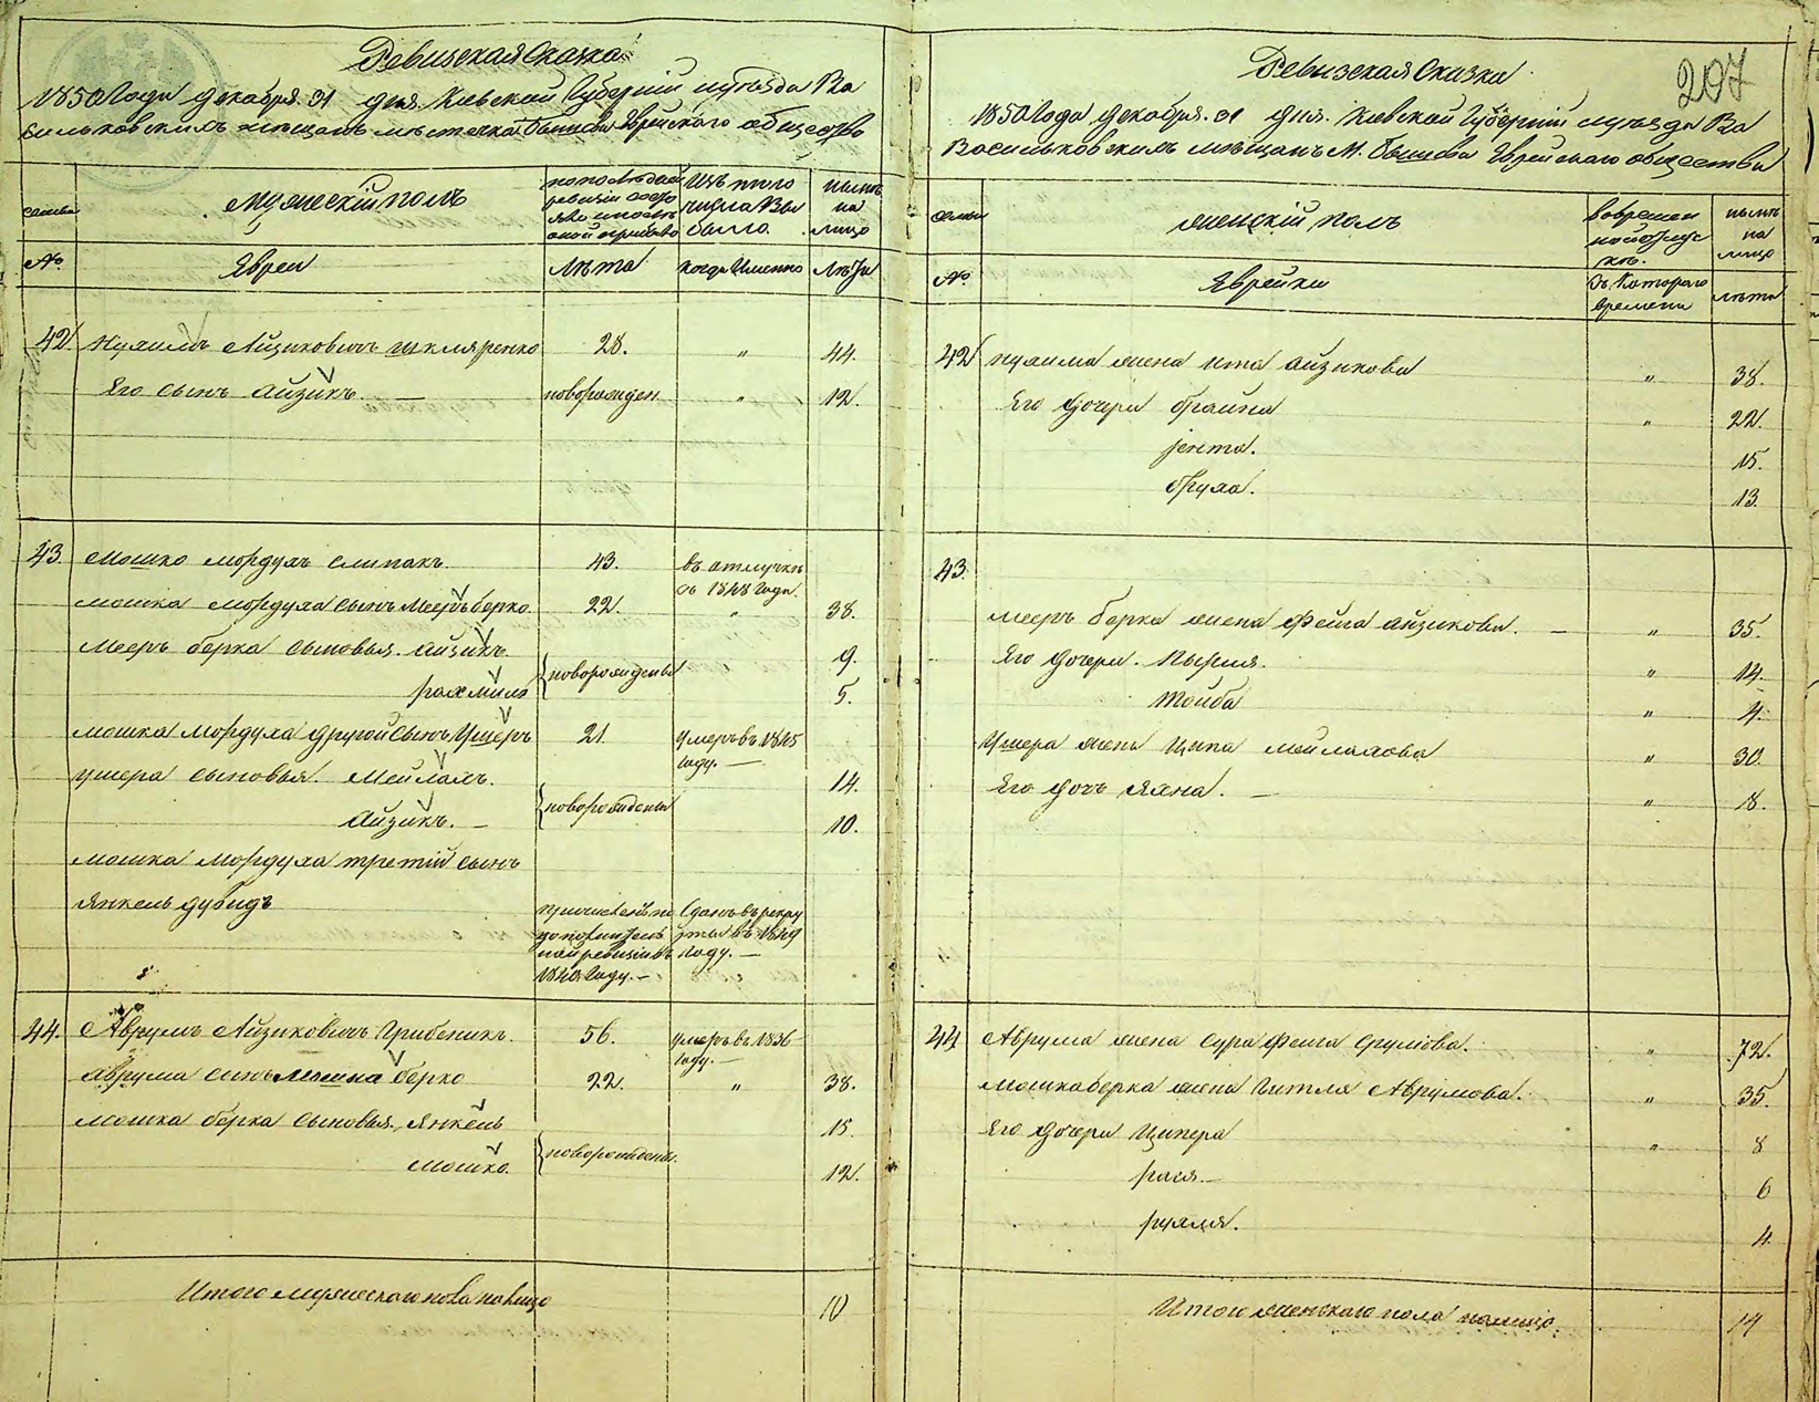 Ревизская Сказка
1850 Года декабря 31 дня. Киевской Губернии уезда Ва
сильковскимъ мещанъ местечка Бышева Еврейскаго общества
семьи
мужескій полъ
по последней
ревизіи состо
яло и после
оной прибыло
изъ того
числа вы
было
ныне
на
лицо
№
Евреи
лета
когда именно
лета
42. Нухимъ Айзиковичъ Шкляренко 28. " 44.
Его сынъ Айзикъ — новорожден " 12.
43. Мошко Мордухъ Слипакъ 43. въ отлучке
съ 1848 года.
Мошка Мордуха сынъ Мееръ Берко 22. " 38.
Мееръ Берка сыновья. Айзикъ 9.
новорожденны
Рахмиль 5.
Мошка Мордуха другой сынъ Ушеръ 21. умеръ въ 1845
году. —
Ушера сыновья. Мейлахъ. 14.
новорожденны
Айзикъ. — 10.
Мошка Мордуха третій сынъ
Янкель Дувидъ
причисленъ по
дополнитель
ной ревизіи въ
году. —
сданъ въ рекру
ты въ 1849
году. —
44. Аврумъ Айзиковичъ Грибеникъ. 56. умеръ въ 1836
году. —
Аврума сынъ Мошка Берко 22. " 38.
Мошка Берка сыновья, Янкель 15.
новорожденны.
Мошко. 12.
Итого мужескаго пола налицо 10
207
Ревизская Сказка
1850 Года декабря. 31 дня. Киевской Губерніи уезда Ва
Васильковскимъ мещанъ М. Бышева Еврейскаго общества
семьи
женскій полъ
во времен
ной отлуч
ке.
ныне
на
лицо
№
Еврейки
съ котораго
времени
лета
42 Нухима жена Ита Айзикова " 38.
Его дочери Брайна " 22.
Jента. 15.
Бруха. 13.
43.
Мееръ Берка жена Фейга Айзикова. — " 35.
Его дочери. " 14.
Тойба " 4.
Ушера жена Ципа Мейлахова " 30.
Его дочь Хана. — " 18.
44 Аврума жена Сура Фейга Срулiова. " 72.
Мошка Берка жена Гитля Аврумова. " 35.
Его дочери Ципера " 8
Рася. — 6
Рухля. 4.
Итого женскаго пола налицо. 14